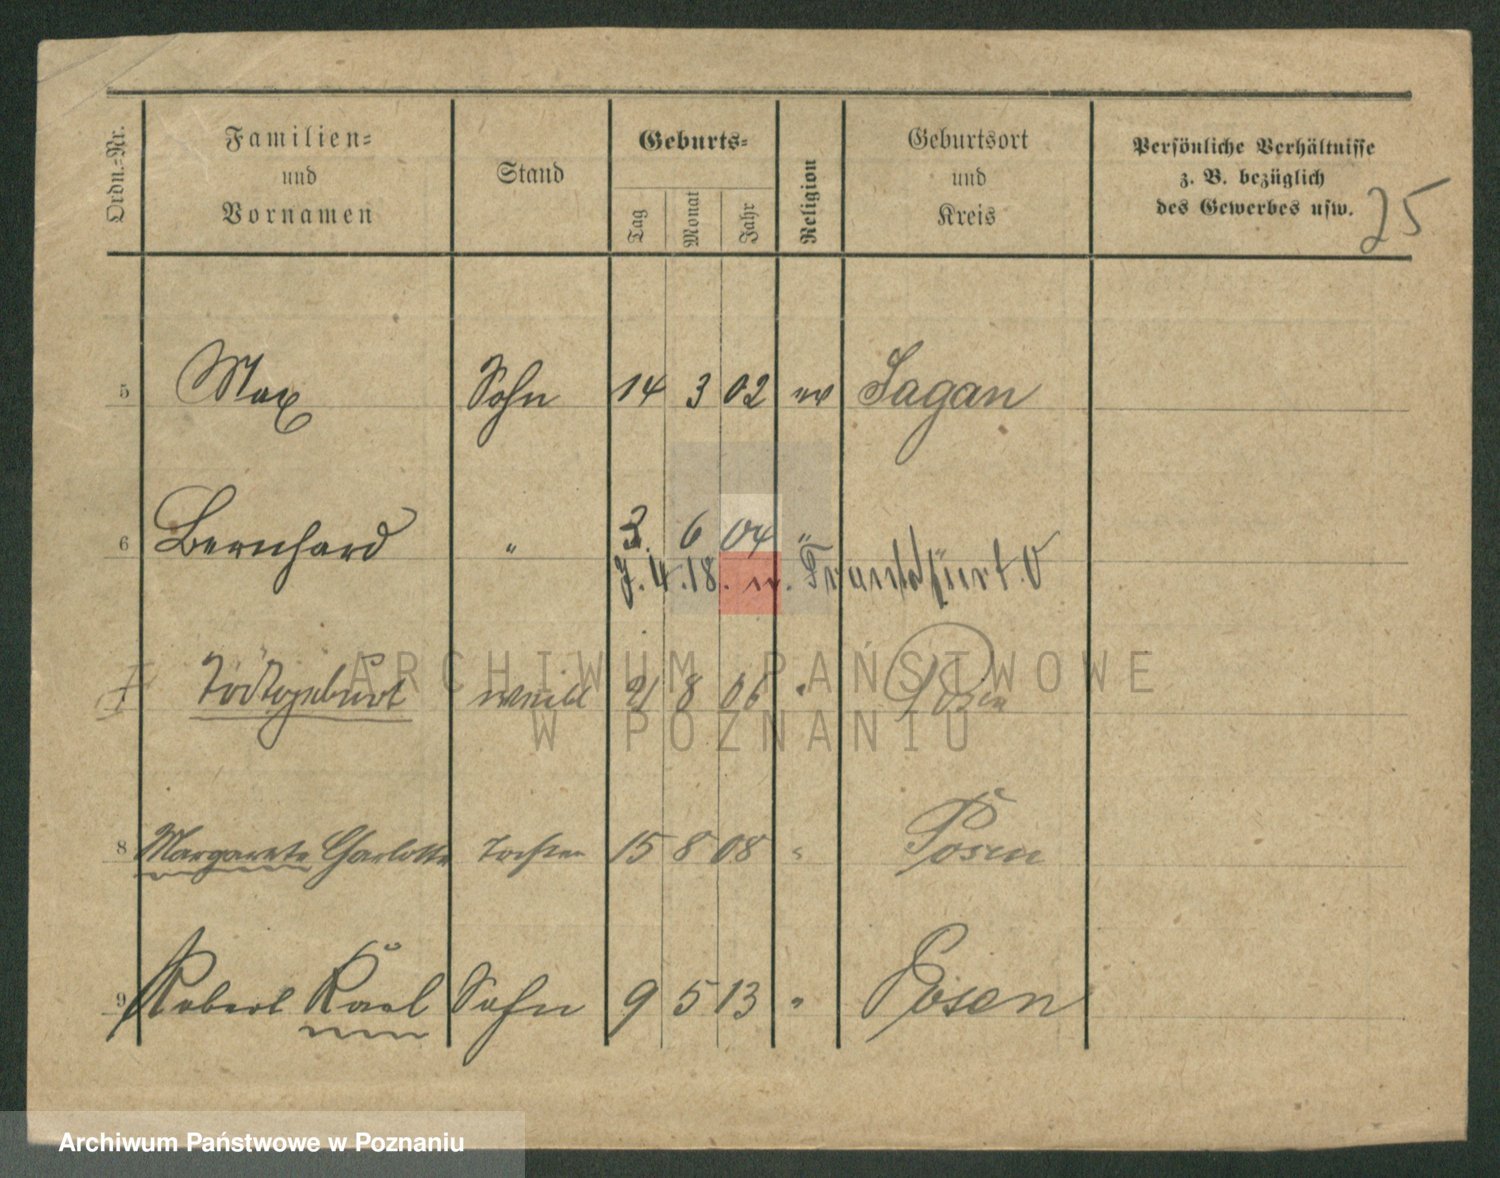 Ordn.-Nr.
Familien-
und
Vornamen
Stand
Geburts-
Tag
Monat
Jahr
Religion
Geburtsort
und
Kreis
Persönliche Verhältnisse
z. B. bezüglich
des Gewerbes usw.
25
5 Max Sohn 14 3 02 ev Sagan
6 Bernhard " 3. 6 04 "
J. 4. 18. n. Frankfurt. O
7 Todtgeburt weibl 21 8 06 " Posen
ARCHIWUM PAŃSTWOWE
W POZNANIU
8 Margarete Charlotte Tochter 15 8 08 " Posen
9 Robert Karl Sohn 9 5 13 " Posen
Archiwum Państwowe w Poznaniu